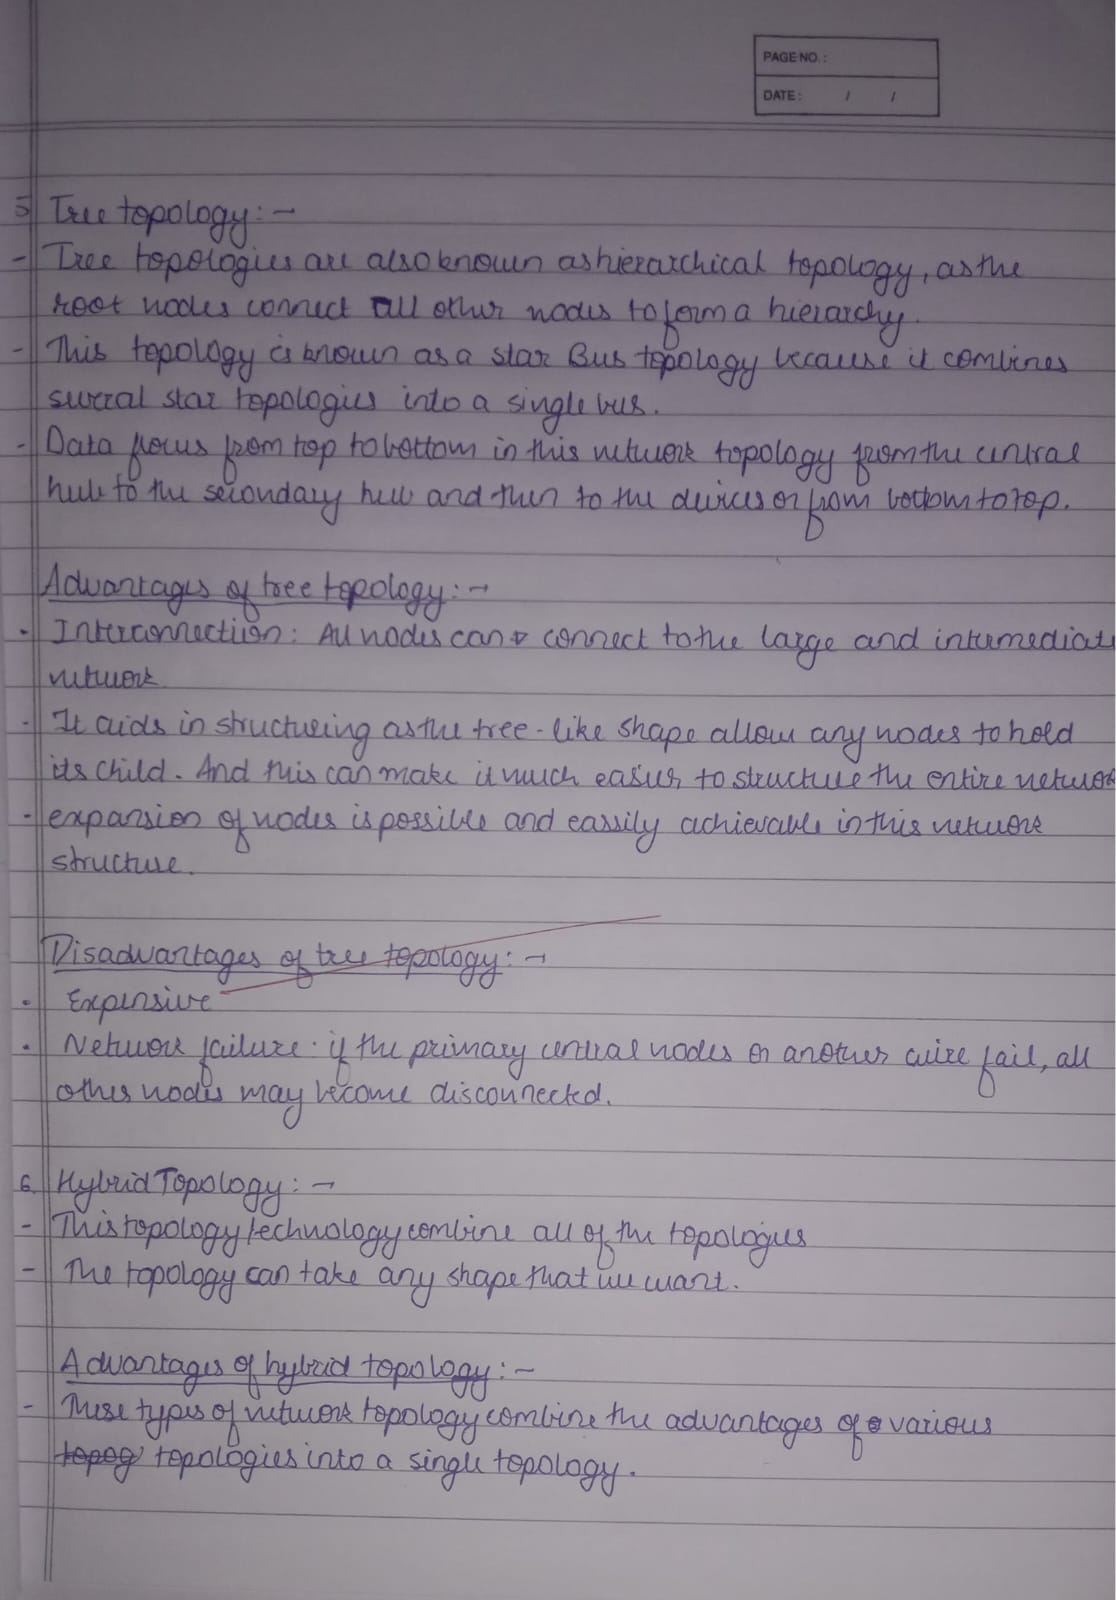 PAGE NO.:
DATE: / /
5 Tree topology:-
- Tree topologies are also known as hierarchical topology, as the
root nodes connect all other nodes to form a hierarchy.
- This topology is known as a star Bus topology because it combines
several star topologies into a single bus.
- Data flows from top to bottom in this network topology from the central
hub to the secondary hub and then to the devices or from bottom to top.
Advantages of tree topology:→
• Interconnection: All nodes can connect to the large and intermediate
network
• It aids in structuring as the tree-like shape allow any nodes to hold
its child. And this can make it much easier to structure the entire network
• expansion of nodes is possible and eassily achievable in this network
structure.
Disadvantages of tree topology:→
• Expensive
• Network failure: if the primary central nodes or another wire fail, all
other nodes may become disconnected.
6. Hybrid Topology:→
- This topology technology combine all of the topologies
- The topology can take any shape that we want.
Advantages of hybrid topology:-
- These types of network topology combine the advantages of various
topog topologies into a single topology.